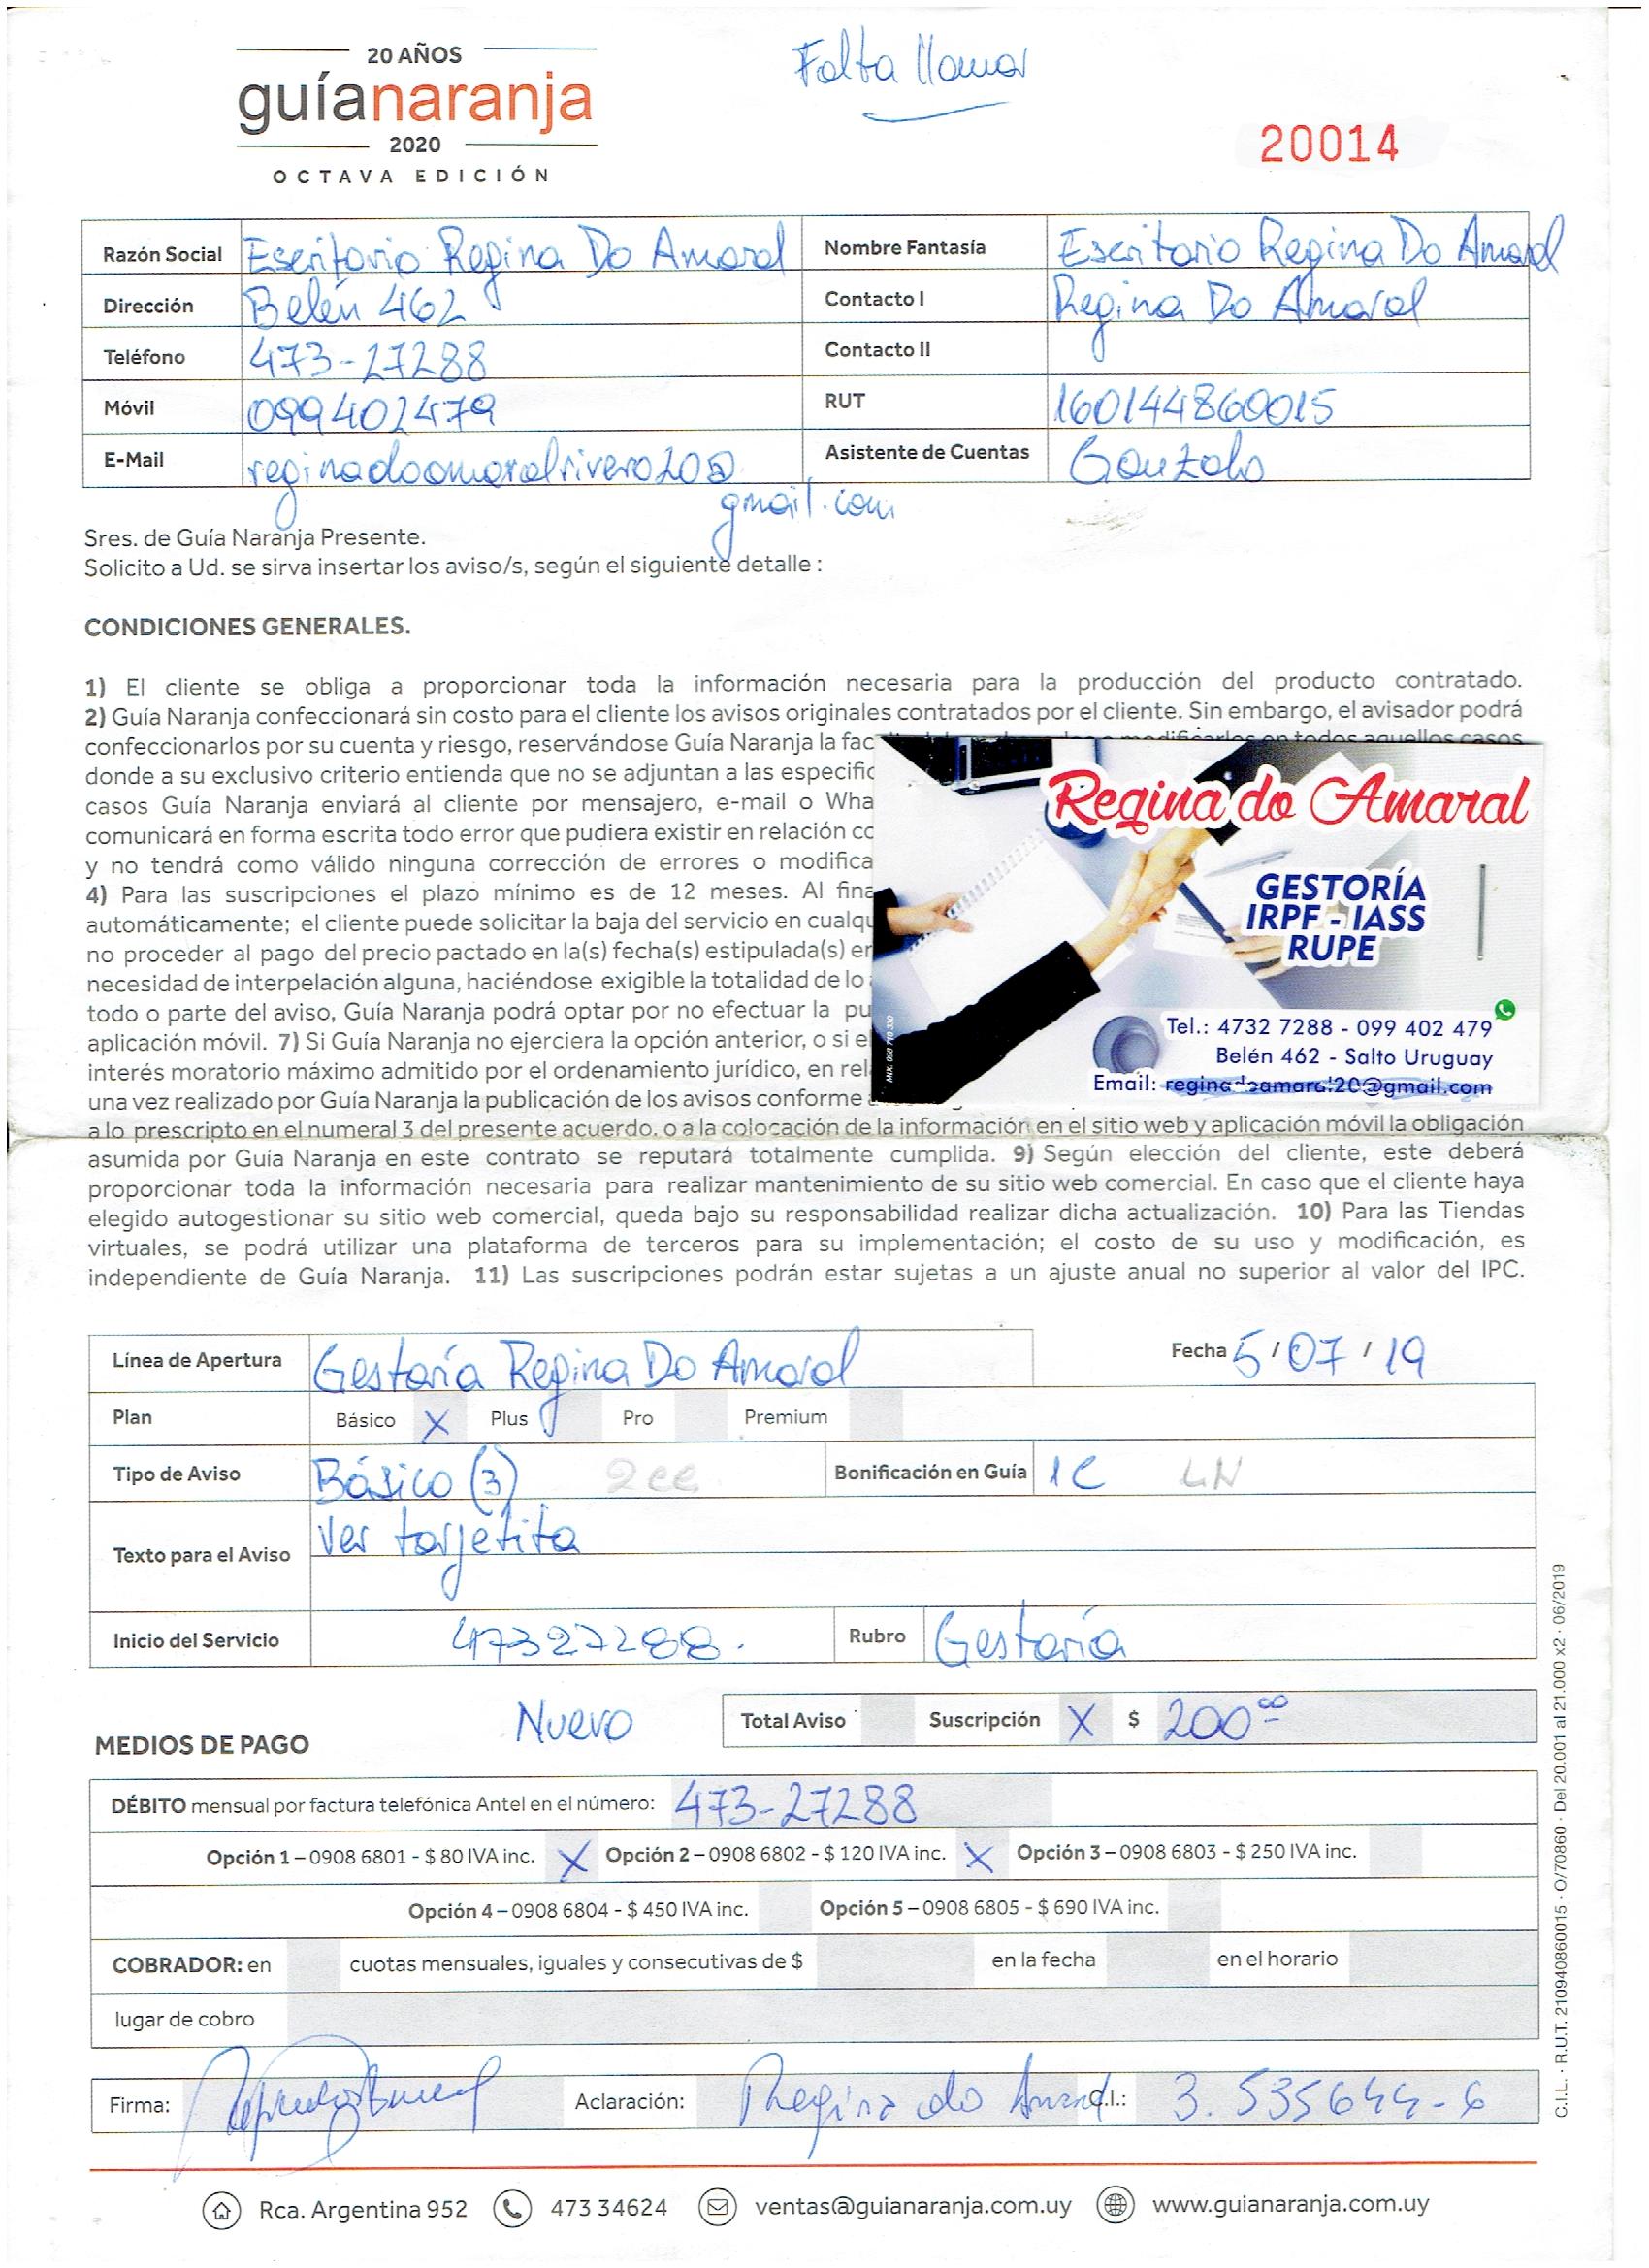 20 AÑOS
guíanaranja
2020
OCTAVA EDICIÓN
Falta llamar
20014
Razón Social Escritorio Regina Do Amaral Nombre Fantasía Escritorio Regina Do Amaral
Dirección Belén 462 Contacto I Regina Do Amaral
Teléfono 473-27288 Contacto II
Móvil 099402479 RUT 160144860015
E-Mail reginadoamaralrivero20@ Asistente de Cuentas Gonzalo
gmail.com
Sres. de Guía Naranja Presente.
Solicito a Ud. se sirva insertar los aviso/s, según el siguiente detalle :
CONDICIONES GENERALES.
1) El cliente se obliga a proporcionar toda la información necesaria para la producción del producto contratado.
2) Guía Naranja confeccionará sin costo para el cliente los avisos originales contratados por el cliente. Sin embargo, el avisador podrá
confeccionarlos por su cuenta y riesgo, reservándose Guía Naranja la fac modificarlos en todos aquellos casos
donde a su exclusivo criterio entienda que no se adjuntan a las especific
casos Guía Naranja enviará al cliente por mensajero, e-mail o Wha
comunicará en forma escrita todo error que pudiera existir en relación co
y no tendrá como válido ninguna corrección de errores o modifica
4) Para las suscripciones el plazo mínimo es de 12 meses. Al fina
automáticamente; el cliente puede solicitar la baja del servicio en cualqu
no proceder al pago del precio pactado en la(s) fecha(s) estipulada(s) en
necesidad de interpelación alguna, haciéndose exigible la totalidad de lo
todo o parte del aviso, Guía Naranja podrá optar por no efectuar la pu
aplicación móvil. 7) Si Guía Naranja no ejerciera la opción anterior, o si el
interés moratorio máximo admitido por el ordenamiento jurídico, en rel
una vez realizado por Guía Naranja la publicación de los avisos conforme
a lo prescripto en el numeral 3 del presente acuerdo, o a la colocación de la información en el sitio web y aplicación móvil la obligación
asumida por Guía Naranja en este contrato se reputará totalmente cumplida. 9) Según elección del cliente, este deberá
proporcionar toda la información necesaria para realizar mantenimiento de su sitio web comercial. En caso que el cliente haya
elegido autogestionar su sitio web comercial, queda bajo su responsabilidad realizar dicha actualización. 10) Para las Tiendas
virtuales, se podrá utilizar una plataforma de terceros para su implementación; el costo de su uso y modificación, es
independiente de Guía Naranja. 11) Las suscripciones podrán estar sujetas a un ajuste anual no superior al valor del IPC.
Regina do Amaral
GESTORÍA
IRPF - IASS
RUPE
Tel.: 4732 7288 - 099 402 479
Belén 462 - Salto Uruguay
Email: reginadoamaral20@gmail.com
MIX: 098 710 330
Línea de Apertura Gestoría Regina Do Amaral Fecha 5 / 07 / 19
Plan Básico X Plus Pro Premium
Tipo de Aviso Básico (3) 2cc Bonificación en Guía 1C LN
Texto para el Aviso Ver tarjetita
Inicio del Servicio 47327288. Rubro Gestoría
Nuevo Total Aviso Suscripción X $ 200 00
MEDIOS DE PAGO
DÉBITO mensual por factura telefónica Antel en el número: 473-27288
Opción 1 – 0908 6801 - $ 80 IVA inc. X Opción 2 – 0908 6802 - $ 120 IVA inc. X Opción 3 – 0908 6803 - $ 250 IVA inc.
Opción 4 – 0908 6804 - $ 450 IVA inc. Opción 5 – 0908 6805 - $ 690 IVA inc.
COBRADOR: en cuotas mensuales, iguales y consecutivas de $ en la fecha en el horario
lugar de cobro
Firma: Aclaración: Regina do Amaral C.I.: 3.535644-6
Rca. Argentina 952 473 34624 ventas@guianaranja.com.uy www.guianaranja.com.uy
C.I.L. · R.U.T. 210940860015 · O/70860 · Del 20.001 al 21.000 x2 · 06/2019